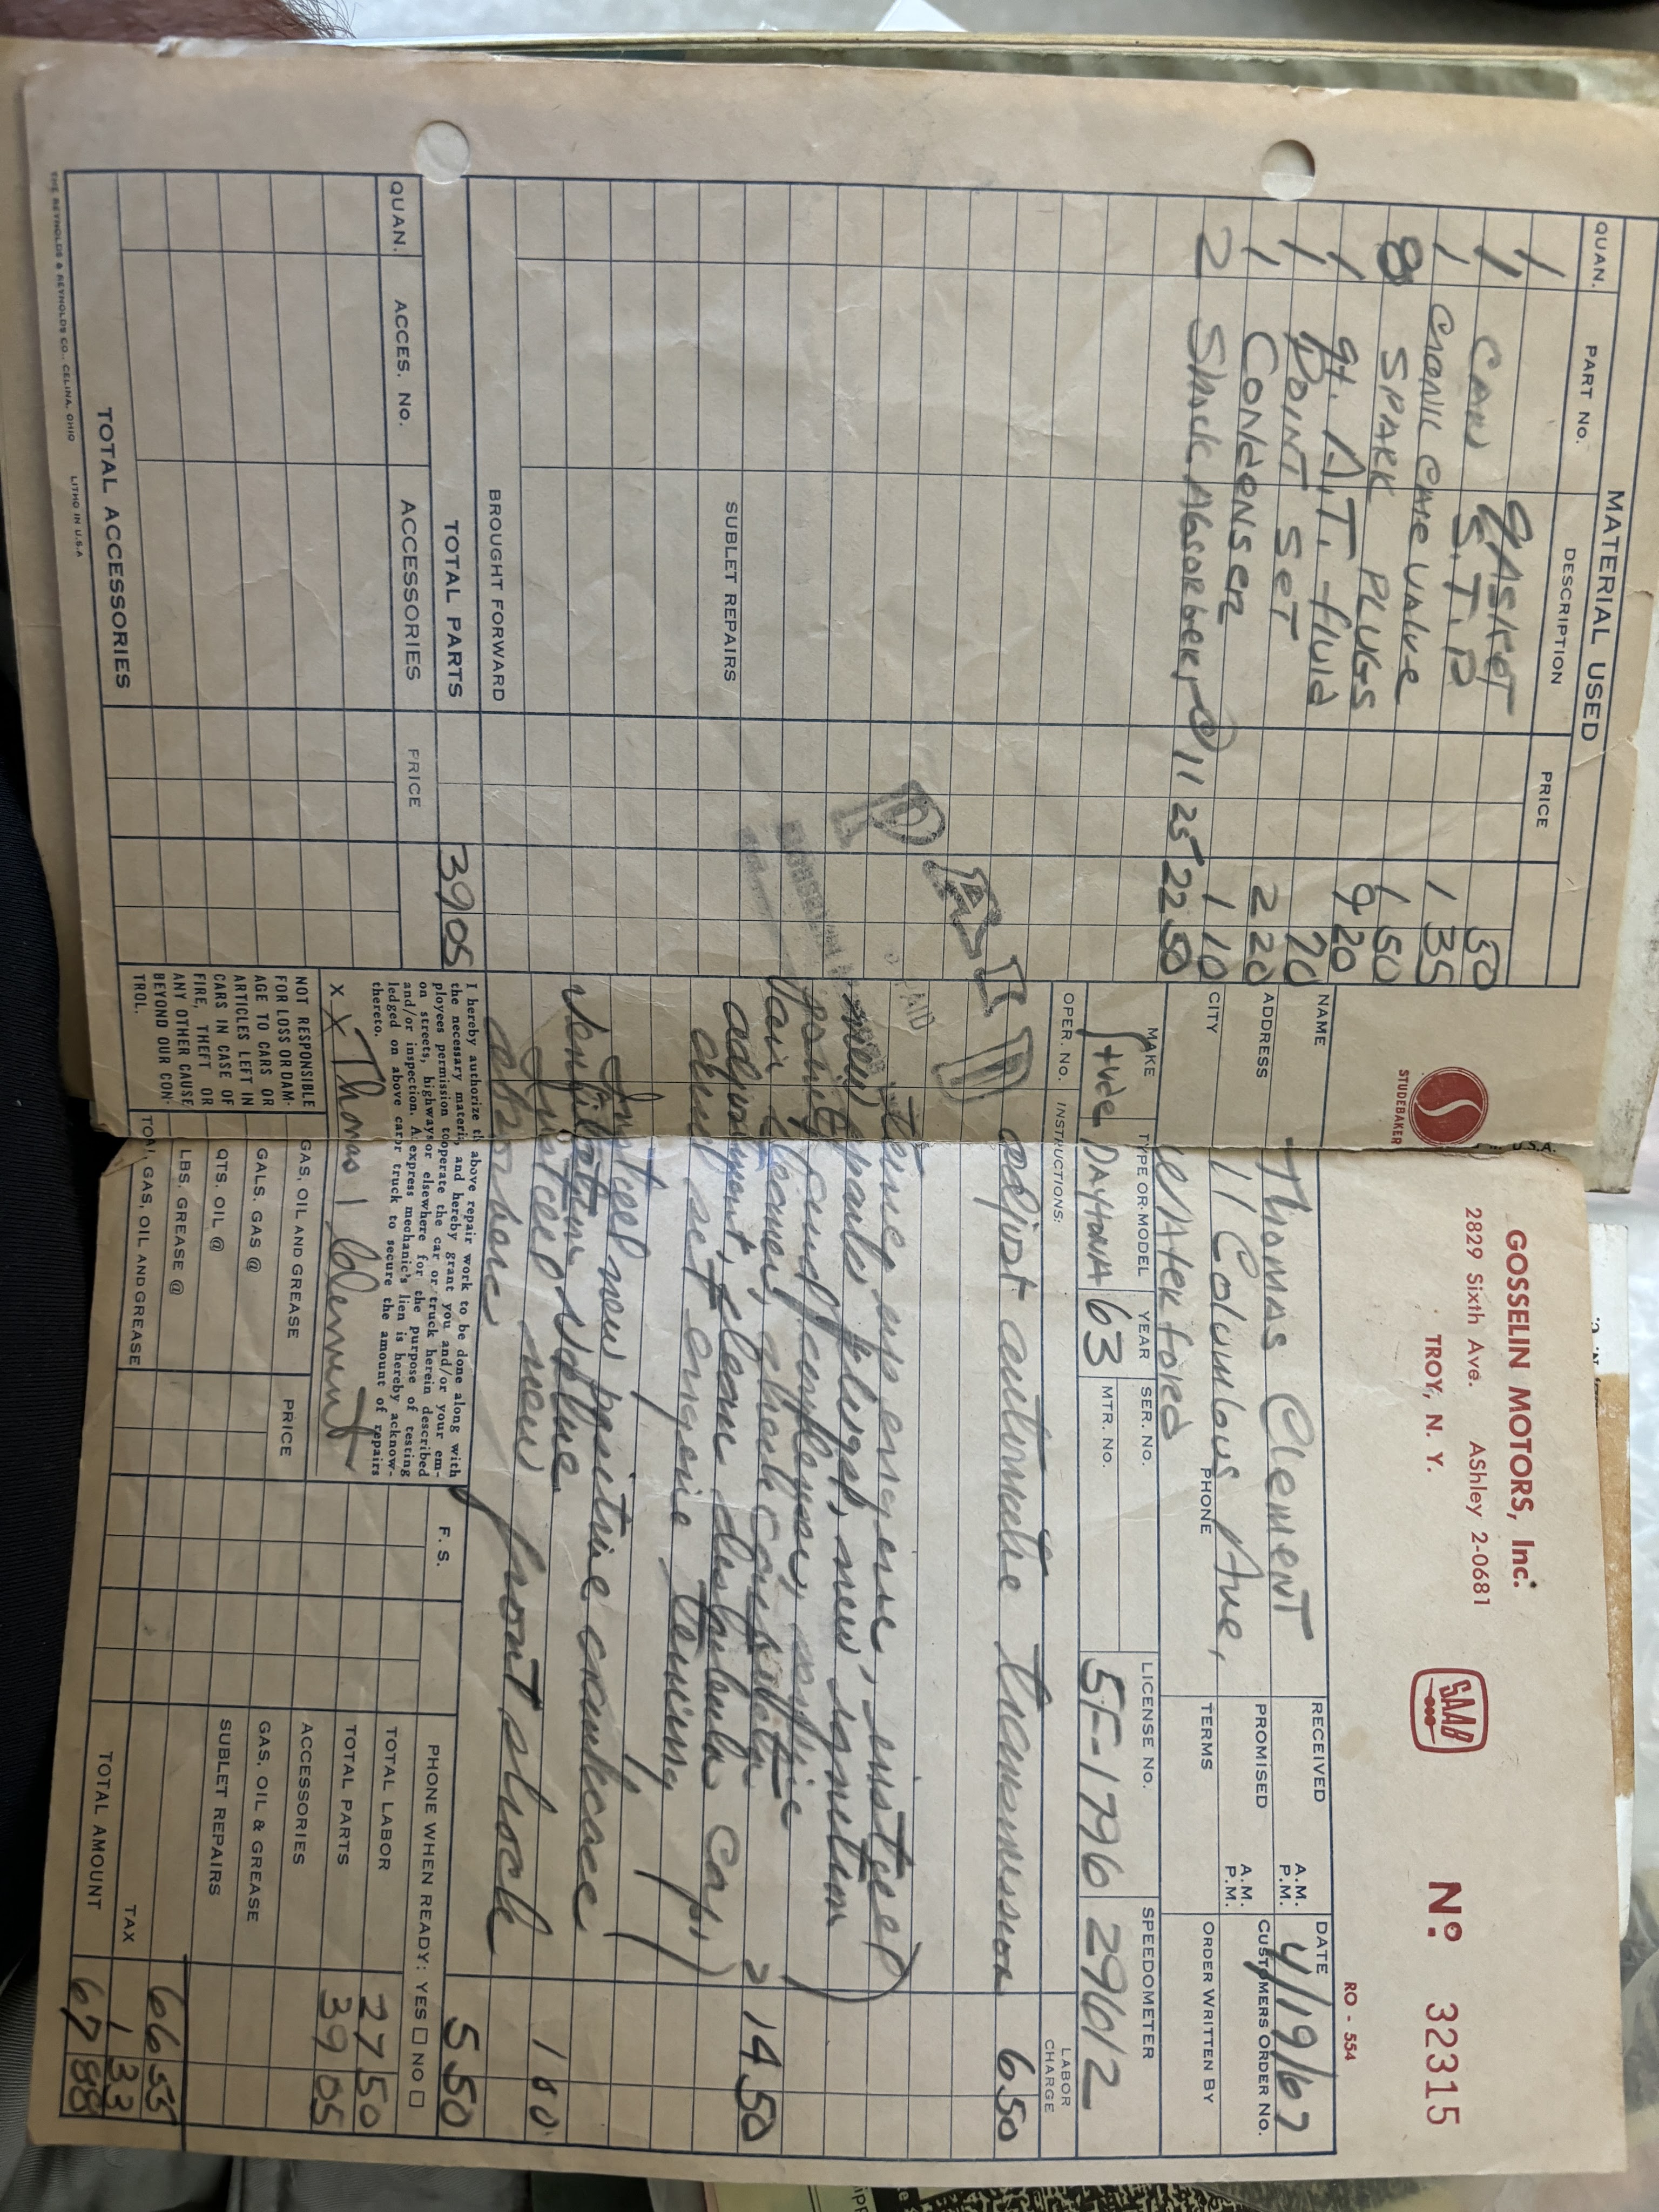 MATERIAL USED
QUAN. PART NO. DESCRIPTION PRICE
1 GASKET 50
1 CAN S.T.P. 1 35
1 CRANK CASE VALVE 1 50
8 SPARK PLUGS 9 20
1 qt. A.T. Fluid 70
1 POINT SET 2 20
1 CONDENSER 1 10
2 Shock Absorbers @ 11 25 22 50
PAID
PAID
SUBLET REPAIRS
BROUGHT FORWARD
TOTAL PARTS 39 05
QUAN. ACCES. No. ACCESSORIES PRICE
TOTAL ACCESSORIES
THE REYNOLDS & REYNOLDS CO., CELINA, OHIO LITHO IN U.S.A
STUDEBAKER
U.S.A.
GOSSELIN MOTORS, Inc.
2829 Sixth Ave. AShley 2-0681
TROY, N. Y.
SAAB
No 32315
RO - 554
NAME Thomas Clement
RECEIVED A.M. P.M.
DATE 4/19/67
ADDRESS 11 Columbus Ave,
PROMISED A.M. P.M.
CUSTOMERS ORDER No.
CITY Waterford
PHONE
TERMS
ORDER WRITTEN BY
MAKE TYPE OR MODEL YEAR SER. NO. LICENSE NO. SPEEDOMETER
Stude DAYTONA 63 5F-1796 29612
MTR. No.
OPER. NO. INSTRUCTIONS: LABOR CHARGE
adjust automatic transmission 6 50
Tune up engine, install
new spark plugs, new ignition
points and condenser, service
air cleaner, check ignition
adjustment, clean distributor cap,
and set engine timing 14 50
Install new positive crankcase
ventilation valve 1 00
Install new front shock
absorbers 5 50
I hereby authorize the above repair work to be done along with
the necessary material, and hereby grant you and/or your em-
ployees permission to operate the car or truck herein described
on streets, highways or elsewhere for the purpose of testing
and/or inspection. An express mechanic's lien is hereby acknow-
ledged on above car or truck to secure the amount of repairs
thereto.
X X Thomas J Clement
NOT RESPONSIBLE
FOR LOSS OR DAM-
AGE TO CARS OR
ARTICLES LEFT IN
CARS IN CASE OF
FIRE, THEFT OR
ANY OTHER CAUSE
BEYOND OUR CON-
TROL.
GAS, OIL AND GREASE PRICE
GALS. GAS @
QTS. OIL @
LBS. GREASE @
TOTAL GAS, OIL AND GREASE
F. S.
PHONE WHEN READY: YES □ NO □
TOTAL LABOR 27 50
TOTAL PARTS 39 05
ACCESSORIES
GAS, OIL & GREASE
SUBLET REPAIRS
66 55
TAX 1 33
TOTAL AMOUNT 67 88